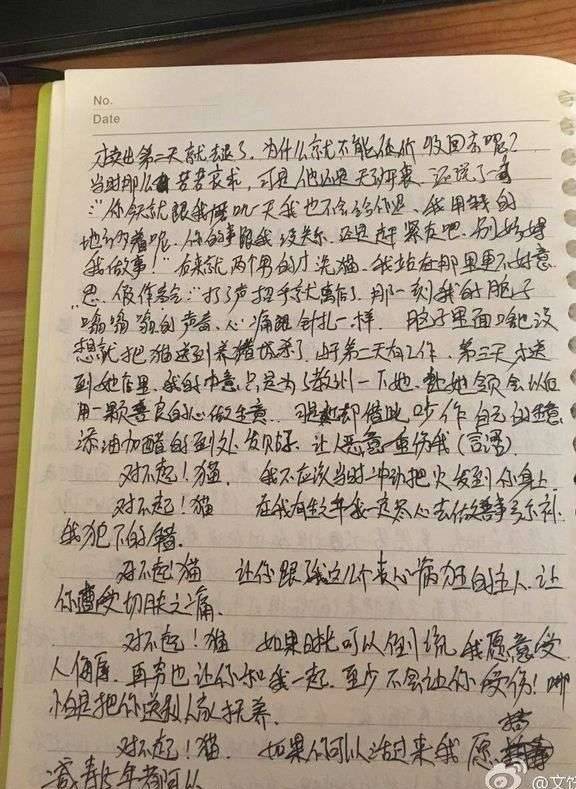 No.
Date
才卖出第二天就去退了，为什么就不能低价收回去呢？
当时那么苦苦哀求，可是他还是无动于衷，还说了一句
："你今天就跟我慨叽一天我也不会给你退，我用钱的
地方多着呢，你的事跟我没关系，还是赶紧走吧，别妨碍
我做事！"后来就两个男的才洗猫，我站在那里更不好意
思，假作客套打了声招呼就离开了，那一刻我的脑子
嗡嗡嗡的声音，心痛跟针扎一样，脑子里面啥也没
想就把猫送到养猪场杀了，由于第二天有工作，第三天才送
到她店里，我的本意只是为了教训一下她，让她领会以后
用一颗善良的心做生意，可是她却借此炒作自己的生意
添油加醋的到处发帖，让人恶意重伤我（言语）
对不起！猫，我不应该当时冲动把火发到你身上，
对不起！猫 在我有生之年我一定尽心去做善事弥补
我犯下的错，
对不起！猫 让你跟了我这个丧心病狂的主人，让
你遭受切肤之痛，
对不起！猫 如果时光可以倒流，我愿意受
人侮辱，再穷也让你和我一起，至少不会让你受伤！哪
怕是把你送别人家抚养，
对不起！猫，如果你可以活过来我愿
减寿5年都可以